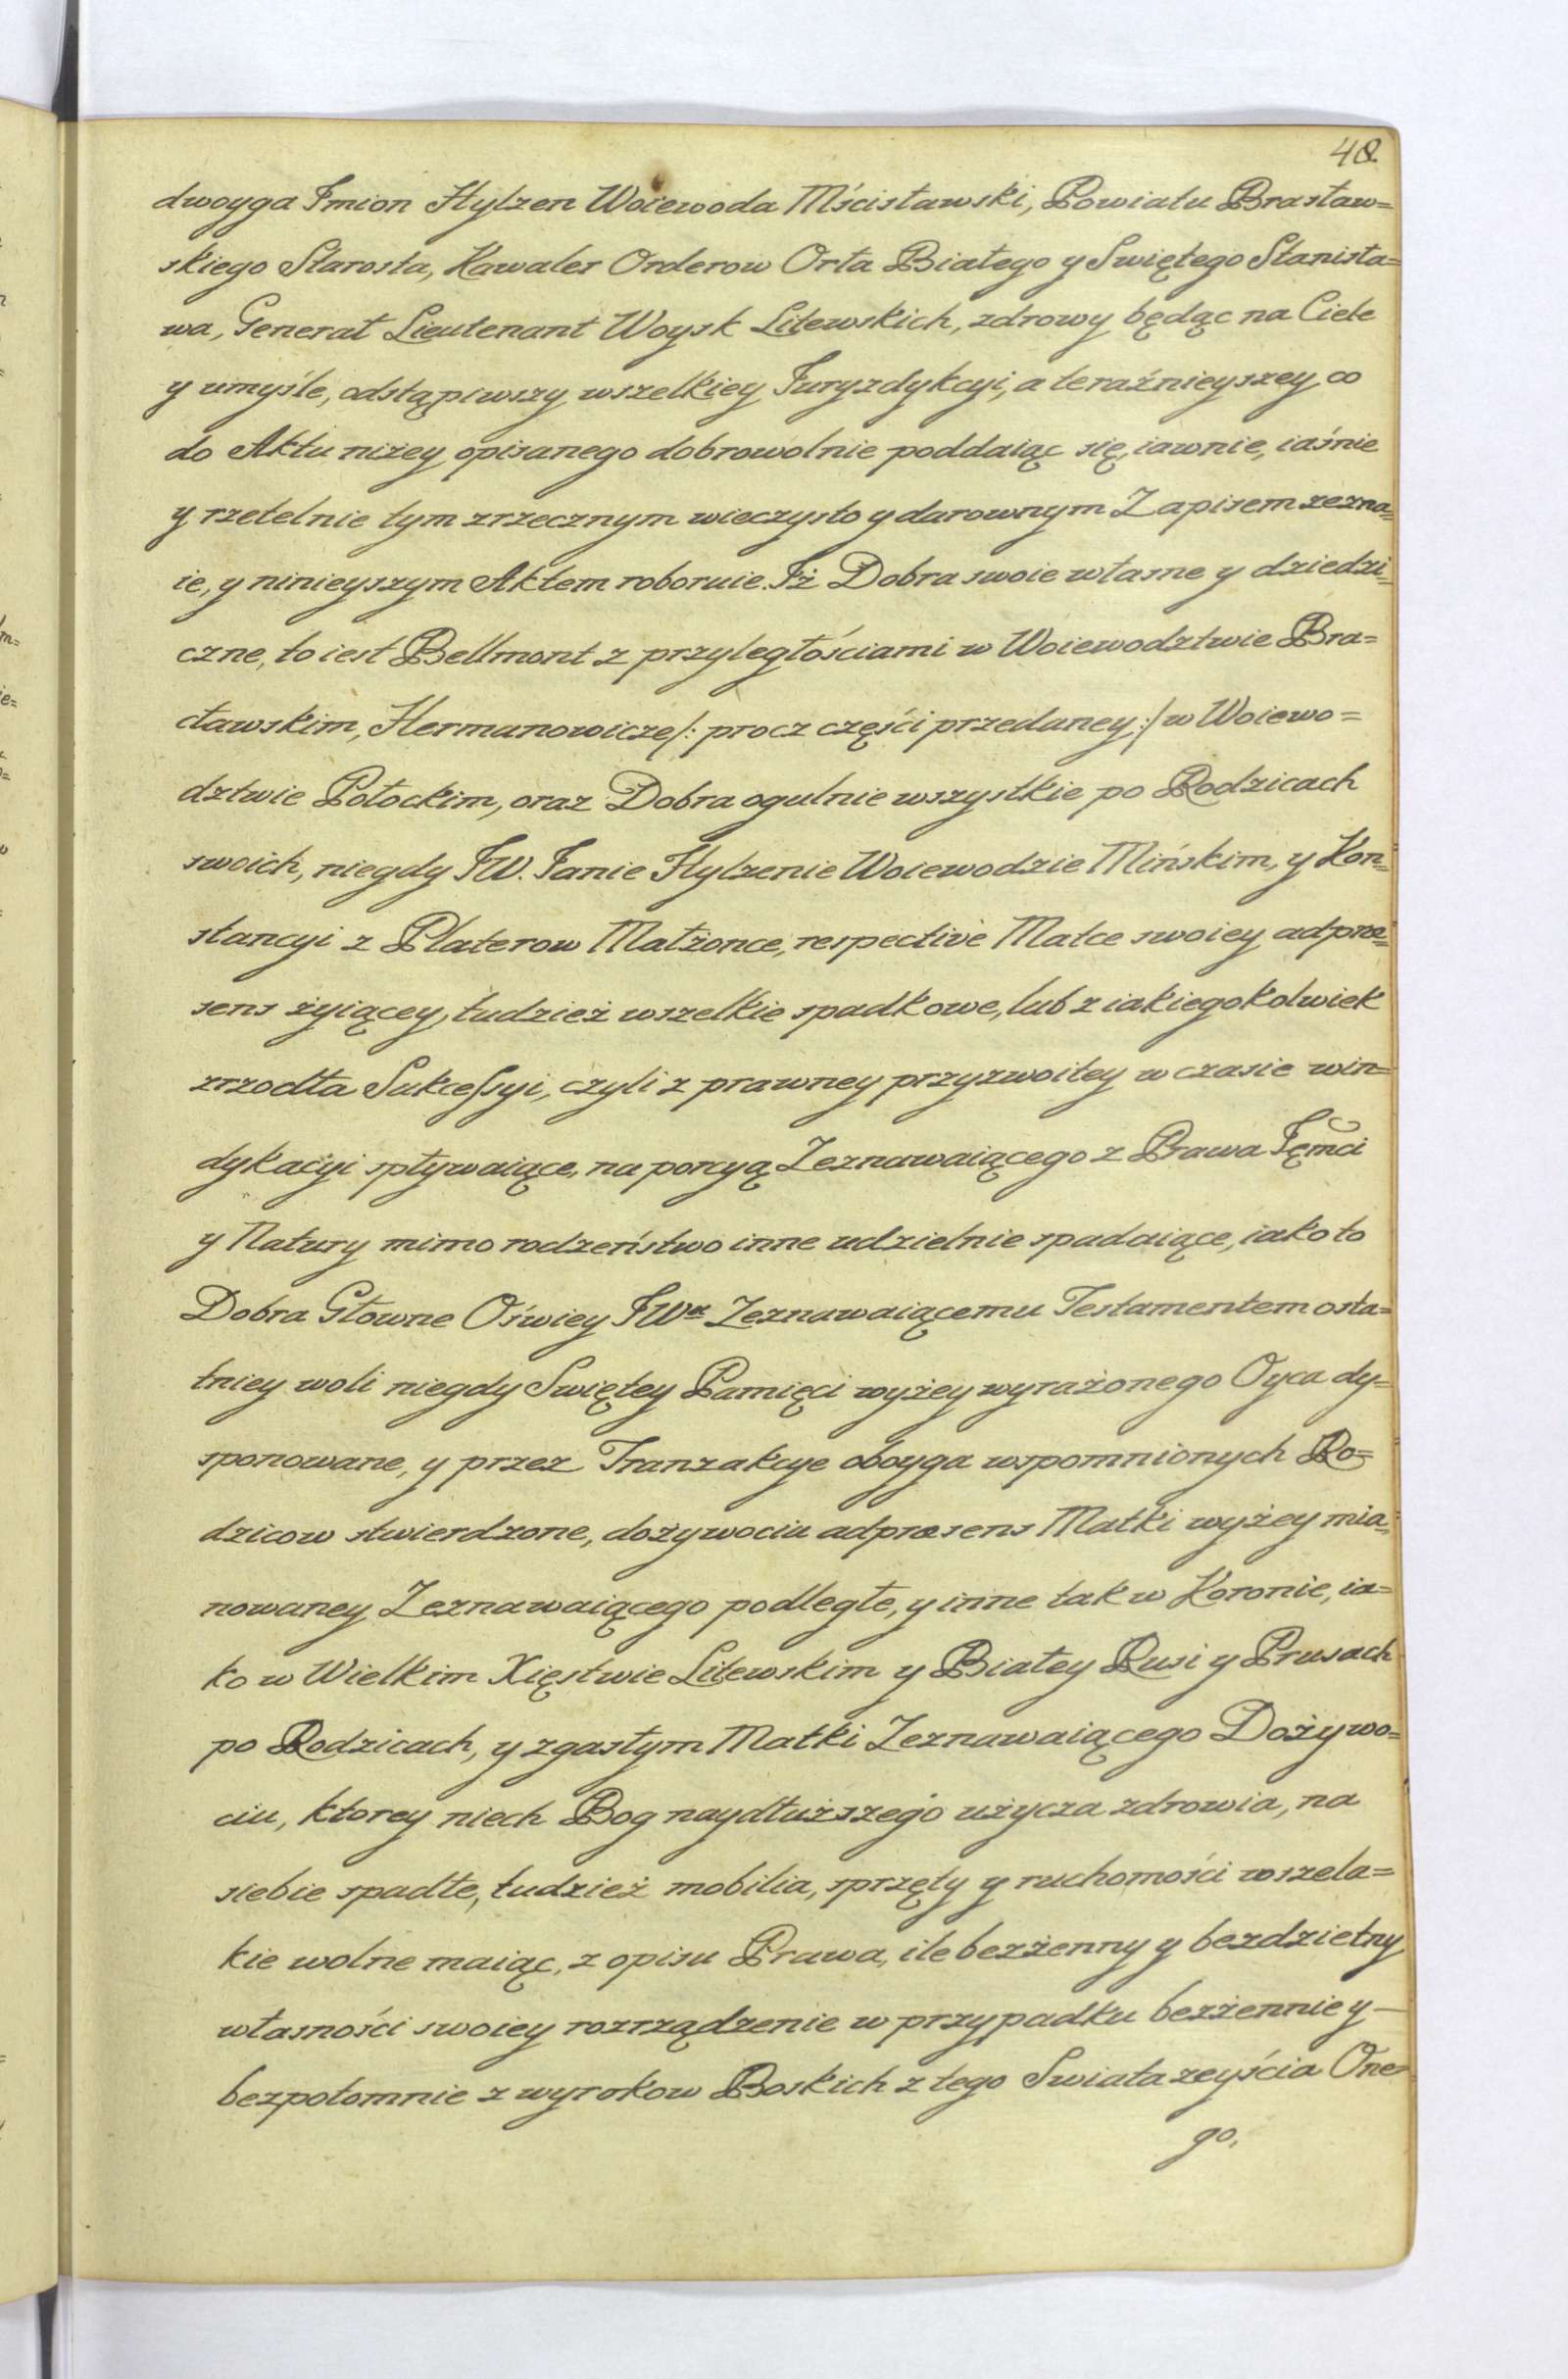 48.
dwoyga Imion Hylzen Woiewoda Mścisławski, Powiatu Brasław=
skiego Starosta, Kawaler Orderow Orła Białego y Swiętego Stanisła=
wa, Generał Lieutenant Woysk Litewskich, zdrowy będąc na Ciele
y umyśle, odstąpiwszy wszelkiey Juryzdykcyi, a teraźnieyszey co
do Aktu niżey opisanego dobrowolnie poddaiąc się, iawnie, iaśnie
y rzetelnie tym zrzecznym wieczysto y darownym Zapisem zezna=
ie, y ninieyszym Aktem roboruie. Iż Dobra swoie własne y dziedzi=
czne, to iest Bellmont z przyległościami w Woiewodztwie Bra=
cławskim, Hermanowicze /: procz części przedaney :/ w Woiewo=
dztwie Połockim, oraz Dobra ogulnie wszystkie po Rodzicach
swoich, niegdy JW. Janie Hylzenie Woiewodzie Mińskim, y Kon=
stancyi z Platerow Małżonce, respectivè Matce swoiey adpræ=
sens żyiącey, tudzież wszelkie spadkowe, lub z iakiegokolwiek
zrzodła Sukcessyi, czyli z prawney przyzwoitey w czasie win=
dykacyi spływaiące, na porcyą Zeznawaiącego z Prawa Jęmci
y Natury mimo rodzeństwo inne udzielnie spadaiące, iako to
Dobra Głowne Oświey JWu Zeznawaiącemu Testamentem osta=
tniey woli niegdy Swiętey Pamięci wyżey wyrażonego Oyca dy=
sponowane, y przez Tranzakcye oboyga wspomnionych Ro=
dzicow stwierdzone, dożywociu adpræsens Matki wyżey mia=
nowaney Zeznawaiącego podległe, y inne tak w Koronie, ia=
ko w Wielkim Xięstwie Litewskim y Białey Rusi y Prusach
po Rodzicach, y zgasłym Matki Zeznawaiącego Dożywo=
ciu, ktorey niech Bog naydłuższego użycza zdrowia, na
siebie spadłe, tudzież mobilia, sprzęty y ruchomości wszela=
kie wolne maiąc, z opisu Prawa, ile bezżenny y bezdzietny
własności swoiey rozrządzenie w przypadku bezżennie y —
bezpotomnie z wyrokow Boskich z tego Swiata zeyścia One=
go,